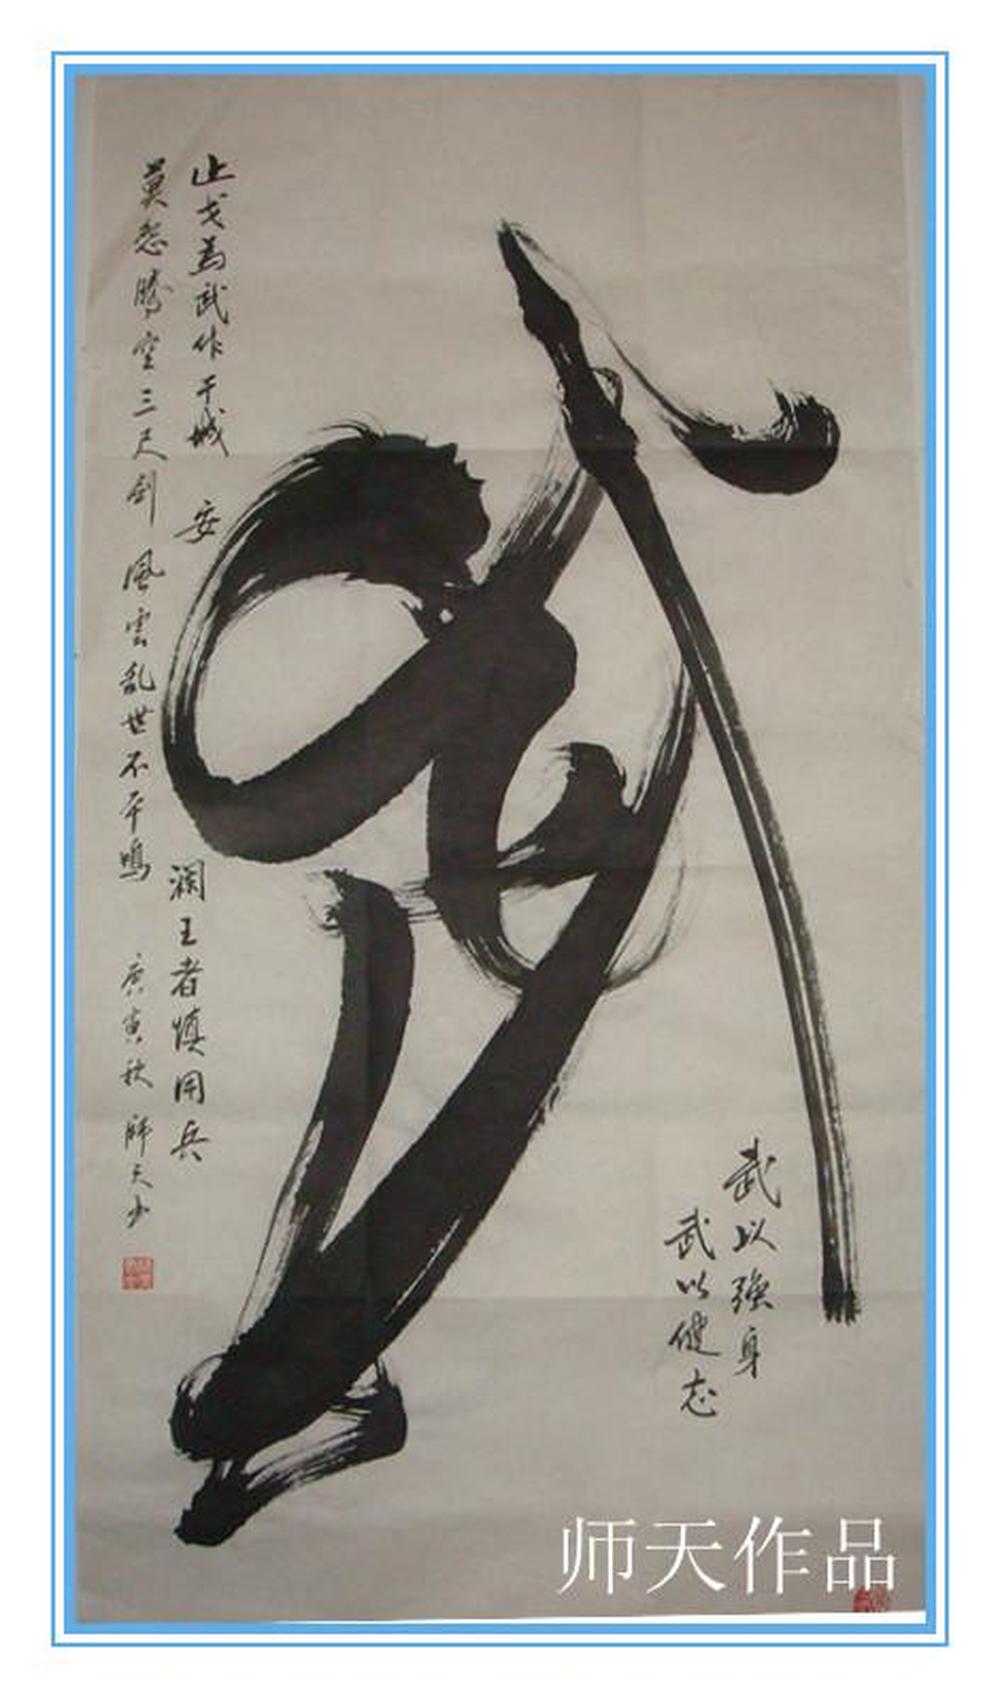 武
止戈為武作干城 安 瀾王者慎用兵
莫怨騰空三尺劍 風雲亂世不平鳴 庚寅秋 師天
武以強身
武以健志
师天作品